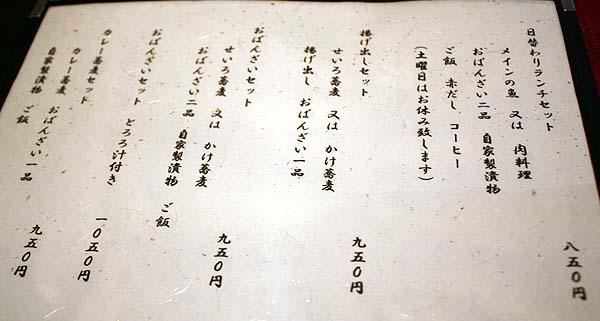 日替わりランチセット
メインの魚 又は 肉料理
おばんざい二品 自家製漬物
ご飯 赤だし、コーヒー
(土曜日はお休み致します)
八五〇円
揚げ出しセット
せいろ蕎麦 又は かけ蕎麦
揚げ出し おばんざい一品
九五〇円
おばんざいセット
せいろ蕎麦 又は かけ蕎麦
おばんざい二品 自家製漬物 ご飯
九五〇円
おばんざいセット とろろ汁付き
一〇五〇円
カレー蕎麦セット
カレー蕎麦 おばんざい一品
自家製漬物 ご飯
九五〇円